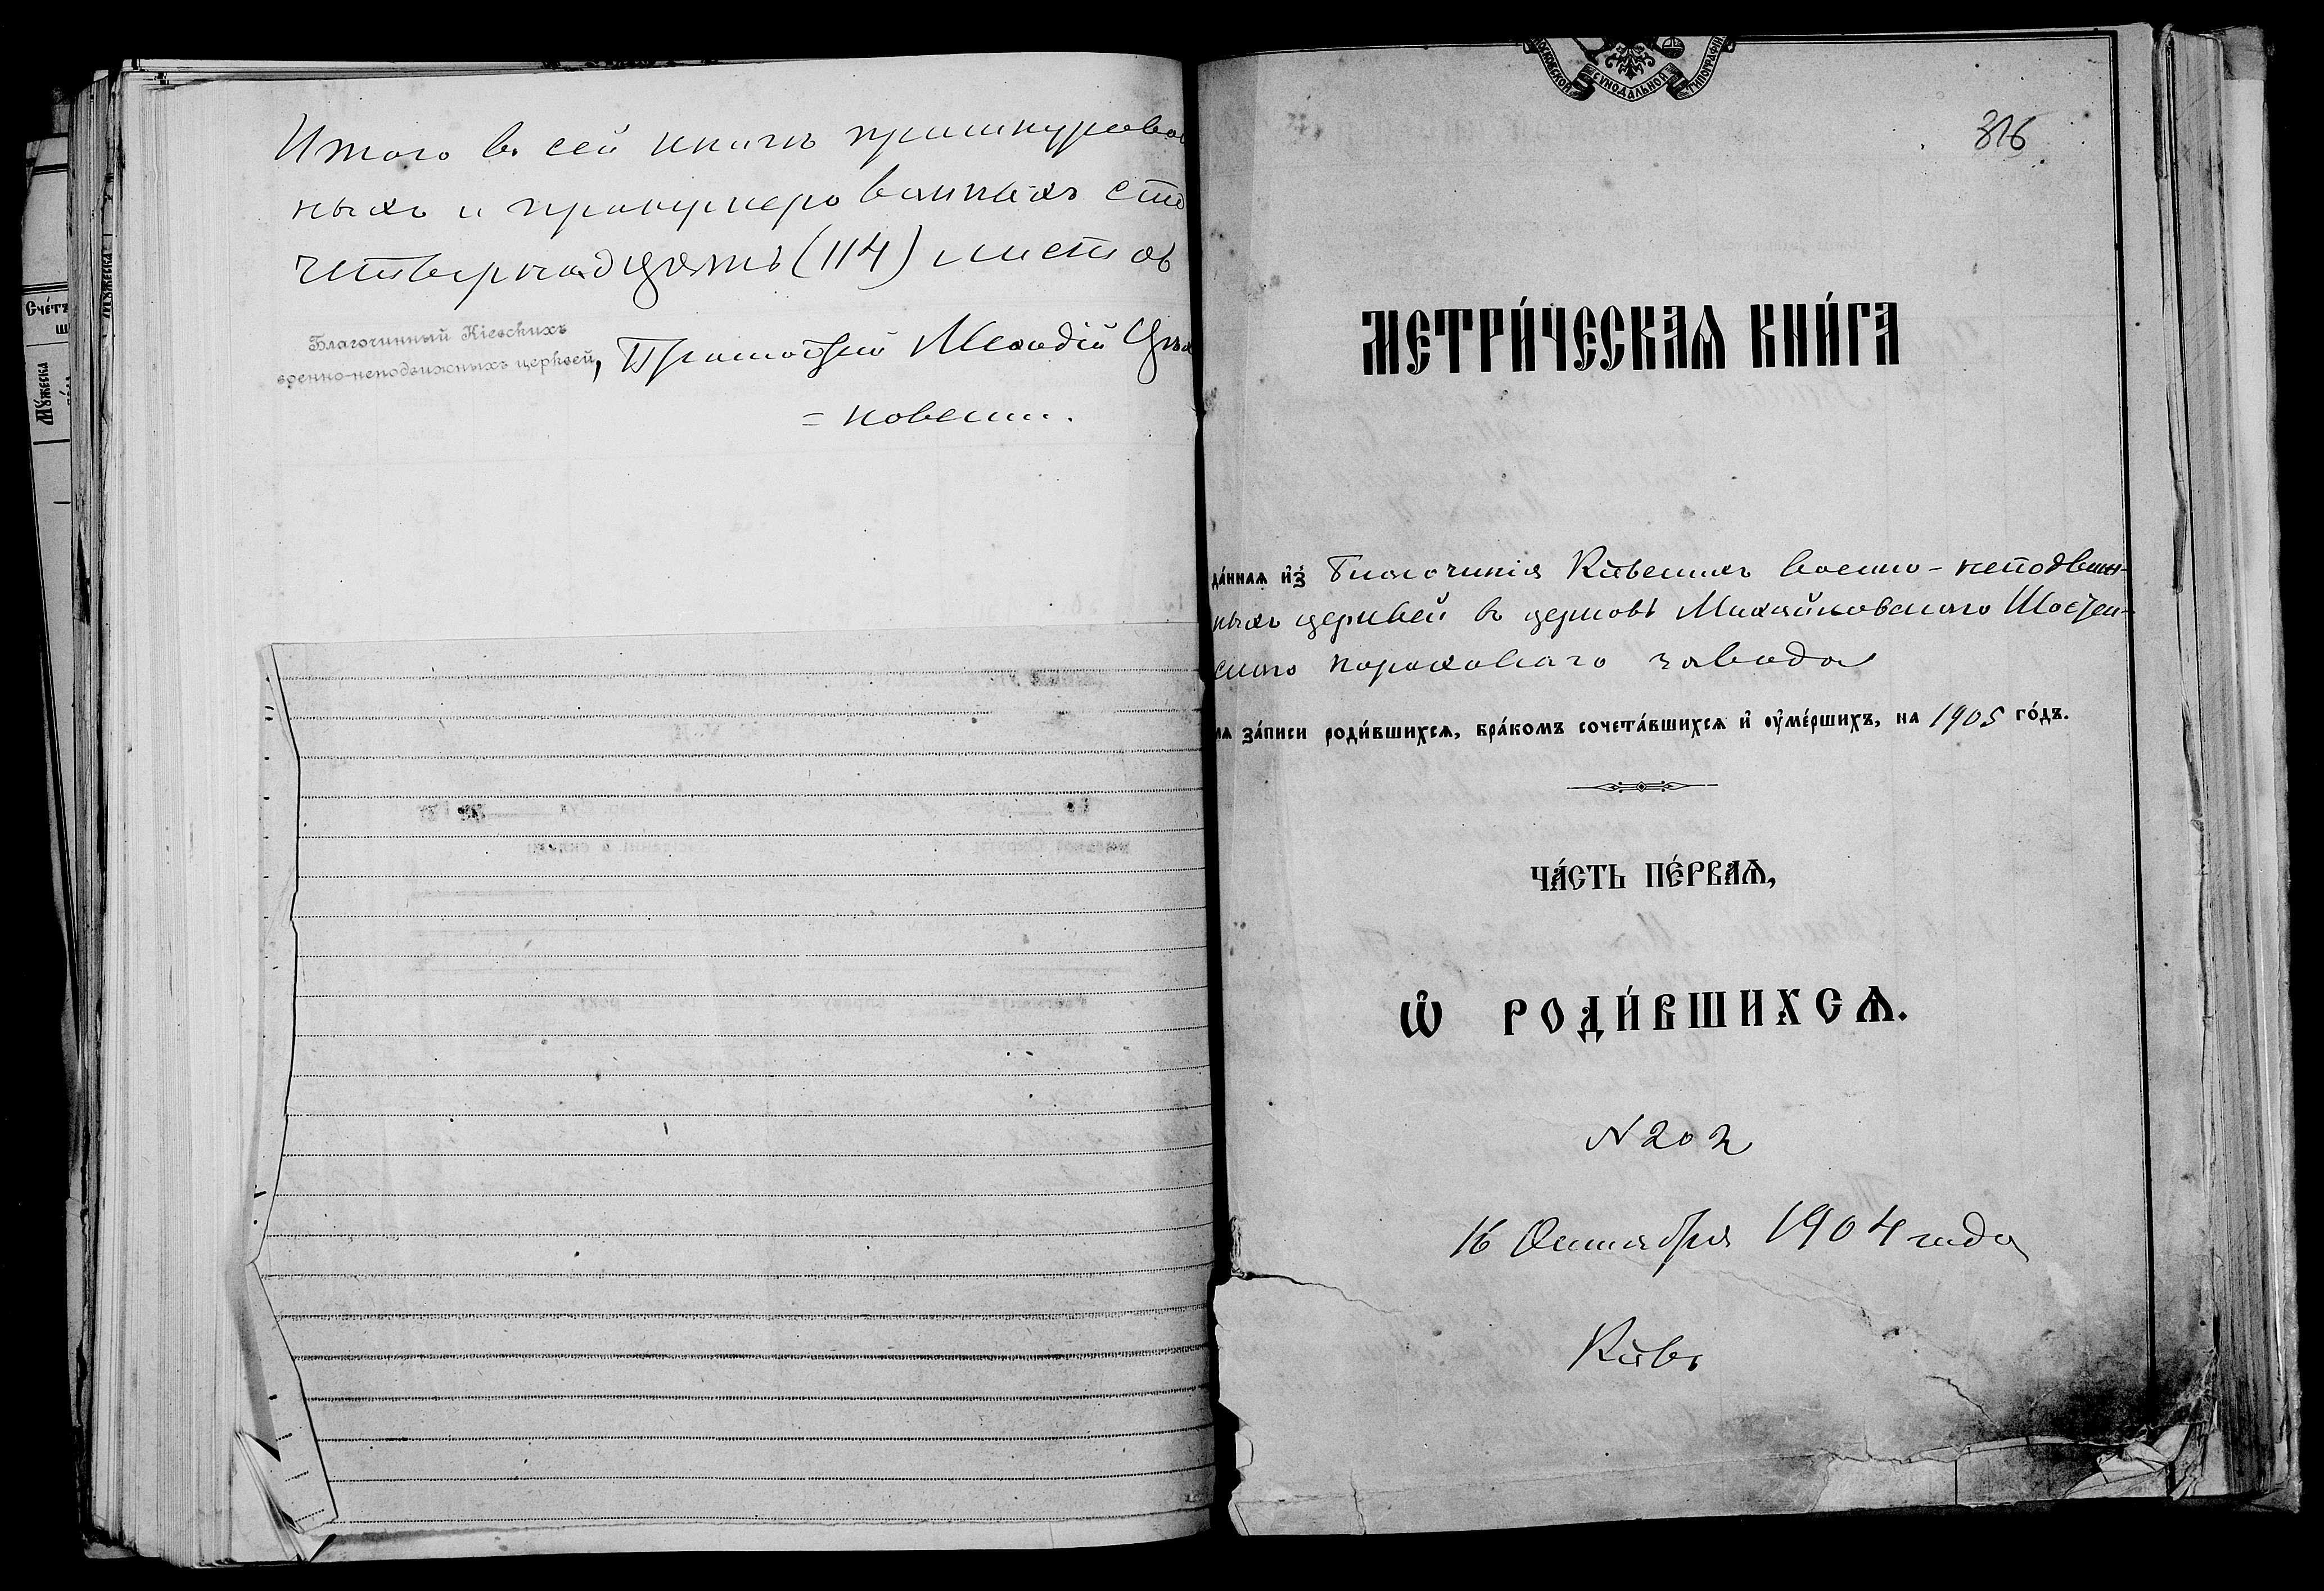 Итого въ сей книгѣ прошнурован
ныхъ и пронумерованныхъ сто
четырнадцать (114) листовъ
Благочинный Кіевскихъ
военно-неподвижныхъ церквей,
Протоіерей
= ковскій.
Счетъ
Мꙋжеска
Мꙋжеска
МОСКОВСКОЙ СѴНОДАЛЬНОЙ ТИПОГРАФІИ
316
МЕТРИ́ЧЕСКАѦ КНИ́ГА
да́ннаѧ и҆з̾ Благочинія Кіевскихъ военно-неподвиж-
ныхъ церквей въ церковь Михайловскаго Шостен-
скаго пороховаго завода
лѧ за́писи роди́вшихсѧ, бра́комъ сочета́вшихсѧ и҆ ᲂу҆ме́ршихъ, на 1905 го́дъ.
ЧА́СТЬ ПЕ́РВАѦ,
Ѡ҆ РОДИ́ВШИХСѦ.
N 202
16 Октября 1904 года
Кіевъ